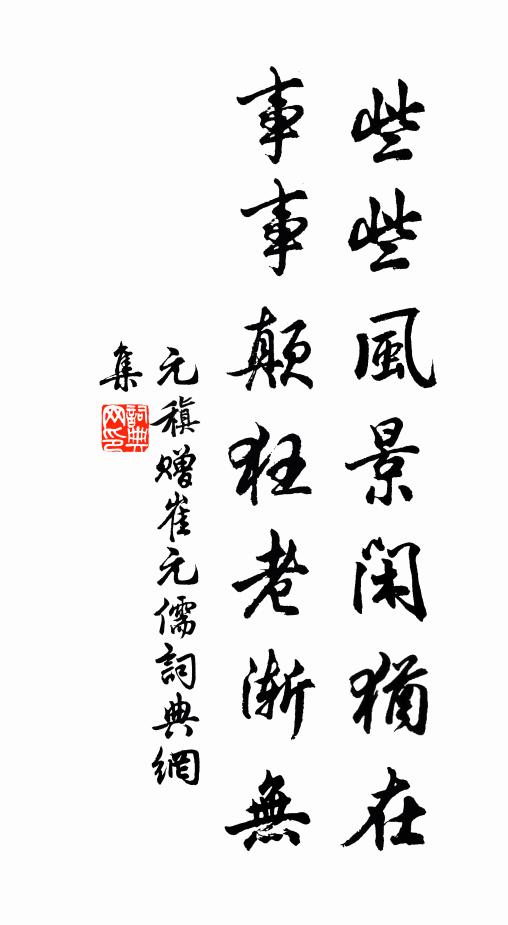 些些風景閑猶在
事事顛狂老漸無
元稹贈崔元儒詞典網
集
詞典
网印